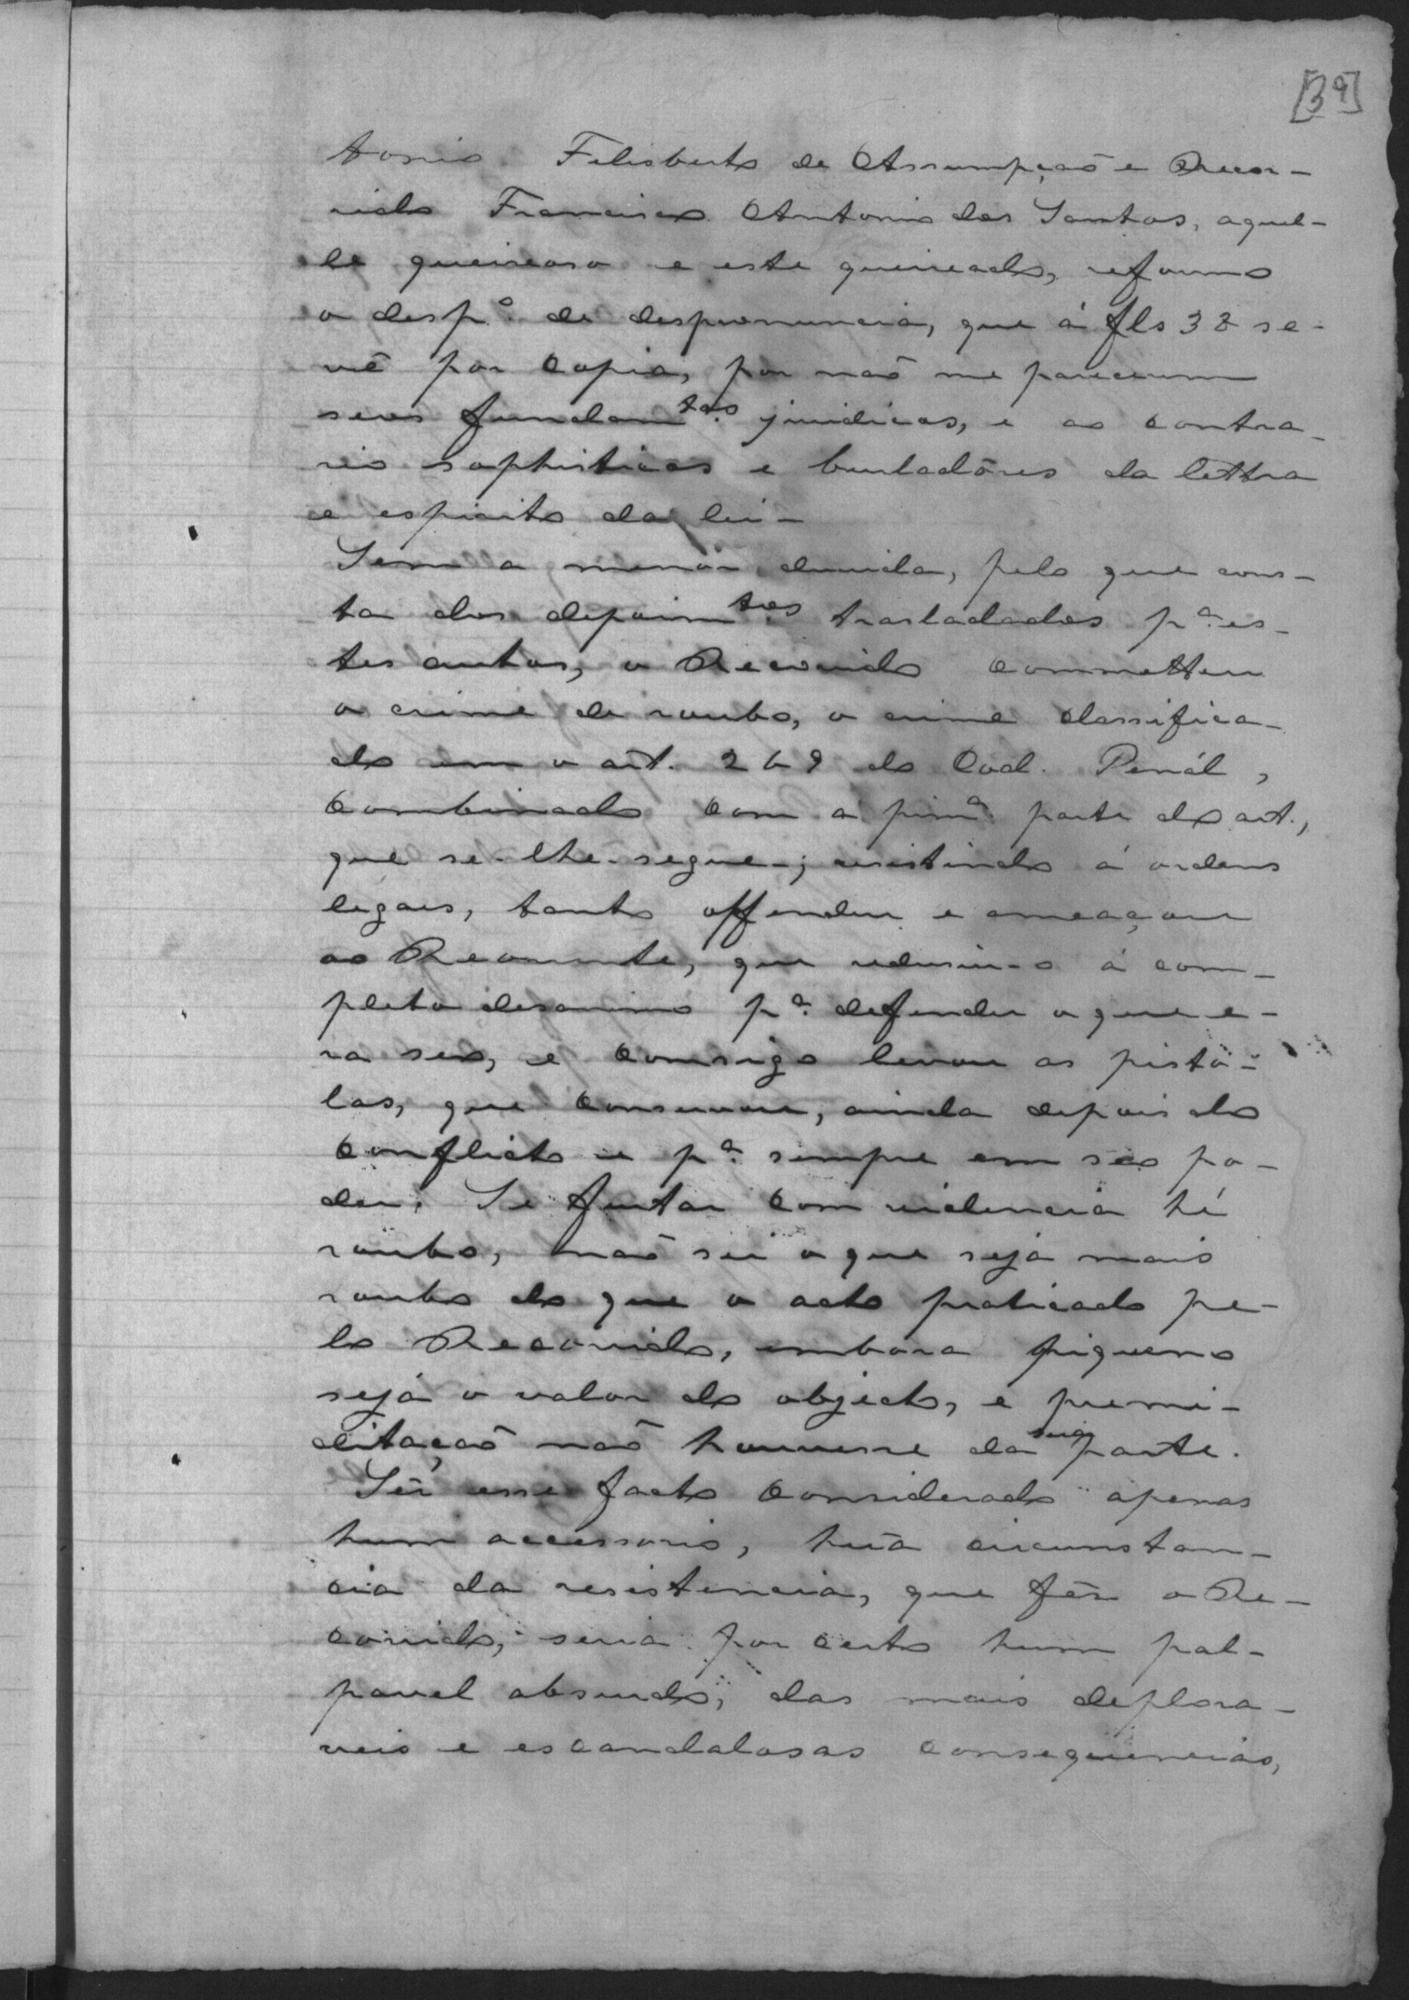 [39]
tonio Felisberto de Assumpção e Recor-
rido Francisco Antonio dos Santos, aquel-
le queixoso e este queixado, reformo
o desp.º de despronuncia, que á fls 38 se-
vê por copia, por não me parecerem
seos fundam.tos juridicos, e ao contra-
rio sophisticos e burladôres da lettra
e espirito da lei-
Sem a menór duvida, pelo que cons-
ta dos depoim.tos trasladados p.ª es-
tes autos, o Recorrido commetteu
o crime de roubo, o crime classifica-
do em o art. 269 do Cod. Penál,
combinado com a prim.ª parte do art.,
que se-lhe-segue-; resistindo á ordens
legáes, tanto offendeu e ameaçou
ao Recorrente, que redusiu-o á com-
pleto desanimo p.ª defender o que e-
ra seo, e comsigo levou as pistó-
las, que conservou, ainda depois do
conflicto e p.ª sempre em seo po-
der. Se furtar com violencia hé
roubo, não sei o que sejá mais
roubo do que o acto praticado pe-
lo Recorrido, embora piqueno
sejá o valor do objecto, e preme-
ditação não houvesse da sua parte.
Sêr esse facto considerado apenas
hum accessorio, hũa circunstan-
cia da resistencia, que fês o Re-
corrido, seria por certo hum pal-
pavel absurdo, das mais deplora-
veis e escandalosas consequencias,